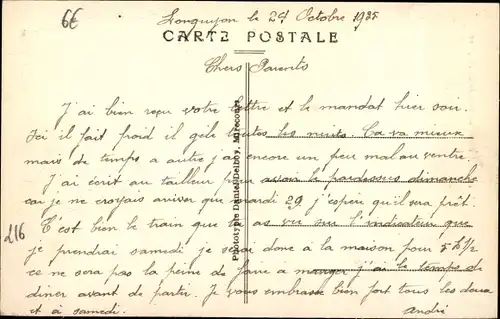 6€
Longuyon le 24 Octobre 1935
CARTE POSTALE
Chers Parents
J'ai bien reçu votre lettre et le mandat hier soir.
Ici il fait froid il gèle toutes les nuits. Ca va mieux
mais de temps a autre j'ai encore un peu mal au ventre.
J'ai écrit au tailleur pour avoir le pardessus dimanche
car je ne croyais arriver que mardi 29 j'espère qu'il sera prêt.
C'est bien le train que tu as vu sur l'indicateur que
je prendrai samedi je serai donc à la maison pour 5h 1/2
ce ne sera pas la peine de faire a manger j'ai le temps de
diner avant de partir. Je vous embrasse bien fort tous les deux
et à samedi. André
216
Phototypie Daniel Delboy, Mirecourt